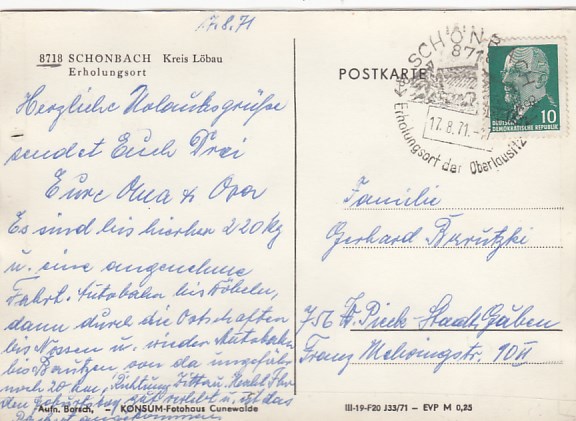 17.8.71
8718 SCHÖNBACH Kreis Löbau
Erholungsort
Herzliche Urlaubsgrüße
sendet Euch Drei
Eure Oma & Opa
Es sind bis hierher 220 kg
u. eine angenehme
Fahrt. Autobahn bis Döbeln,
dann durch die Ortschaften
bis Nossen u. wieder Autobahn
bis Bautzen von da ungefähr
noch 20 km, Richtung Zittau. Habt Ihr
den Geburtstag gut verlebt u. ist das
angekommen
Aufn. Borsch, – KONSUM-Fotohaus Cunewalde
POSTKARTE
SCHÖNB
871
17.8.71.-
Erholungsort der Oberlausitz
10
DEUTSCHE
DEMOKRATISCHE REPUBLIK
Familie
Gerhard
756 W. Pieck-Stadt Guben
Franz Mehringstr. 10 II
III-19-F20 J33/71 – EVP M 0,25